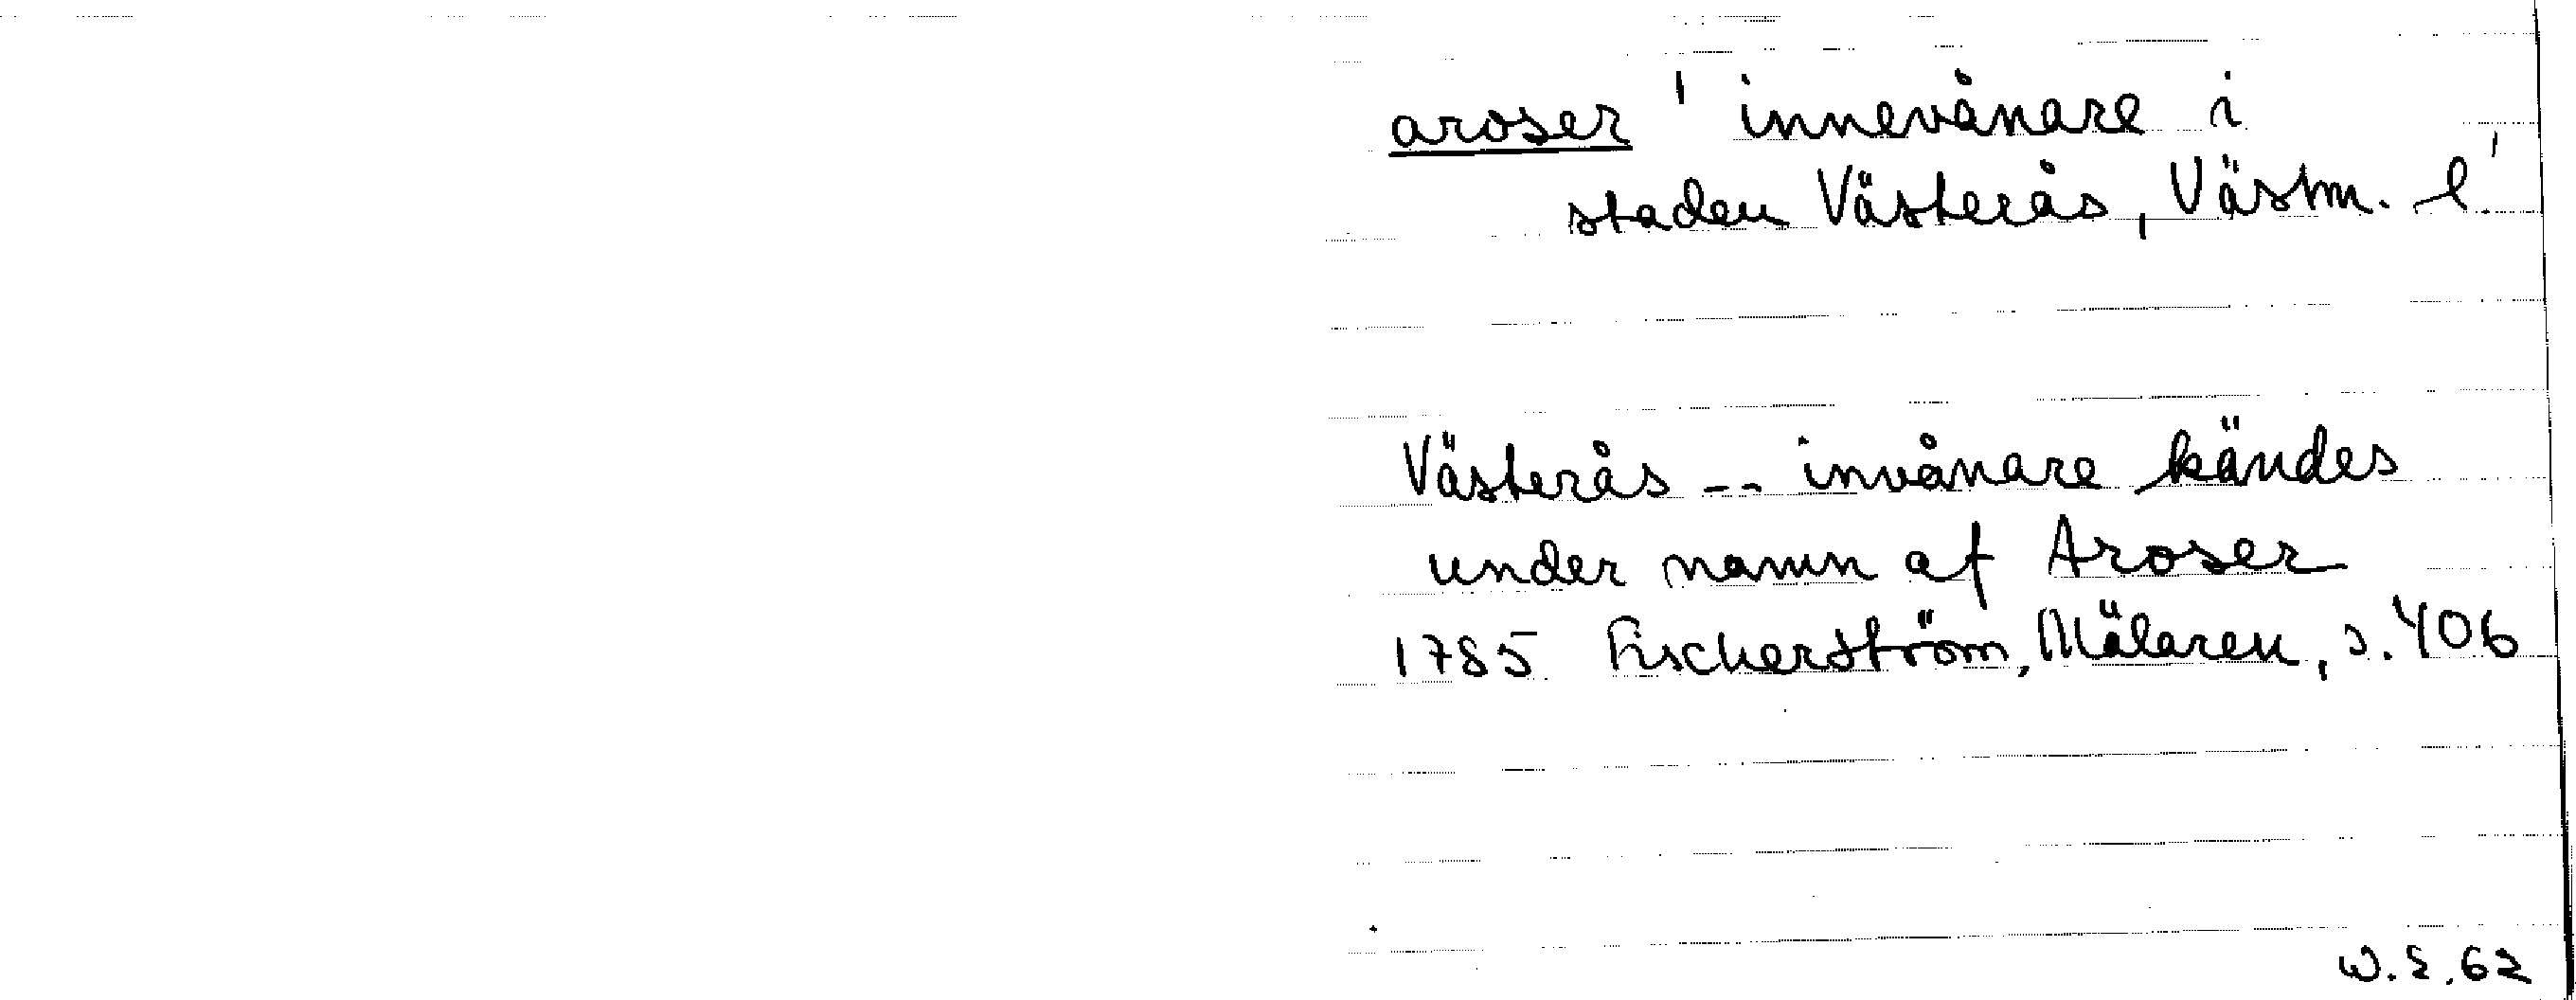 aroser ' innevånare i
staden Västerås, Västm. l'
Västerås -- invånare kändes
under namn af Aroser
1785 Fischerström, Mälaren, s. 406
W.S.62